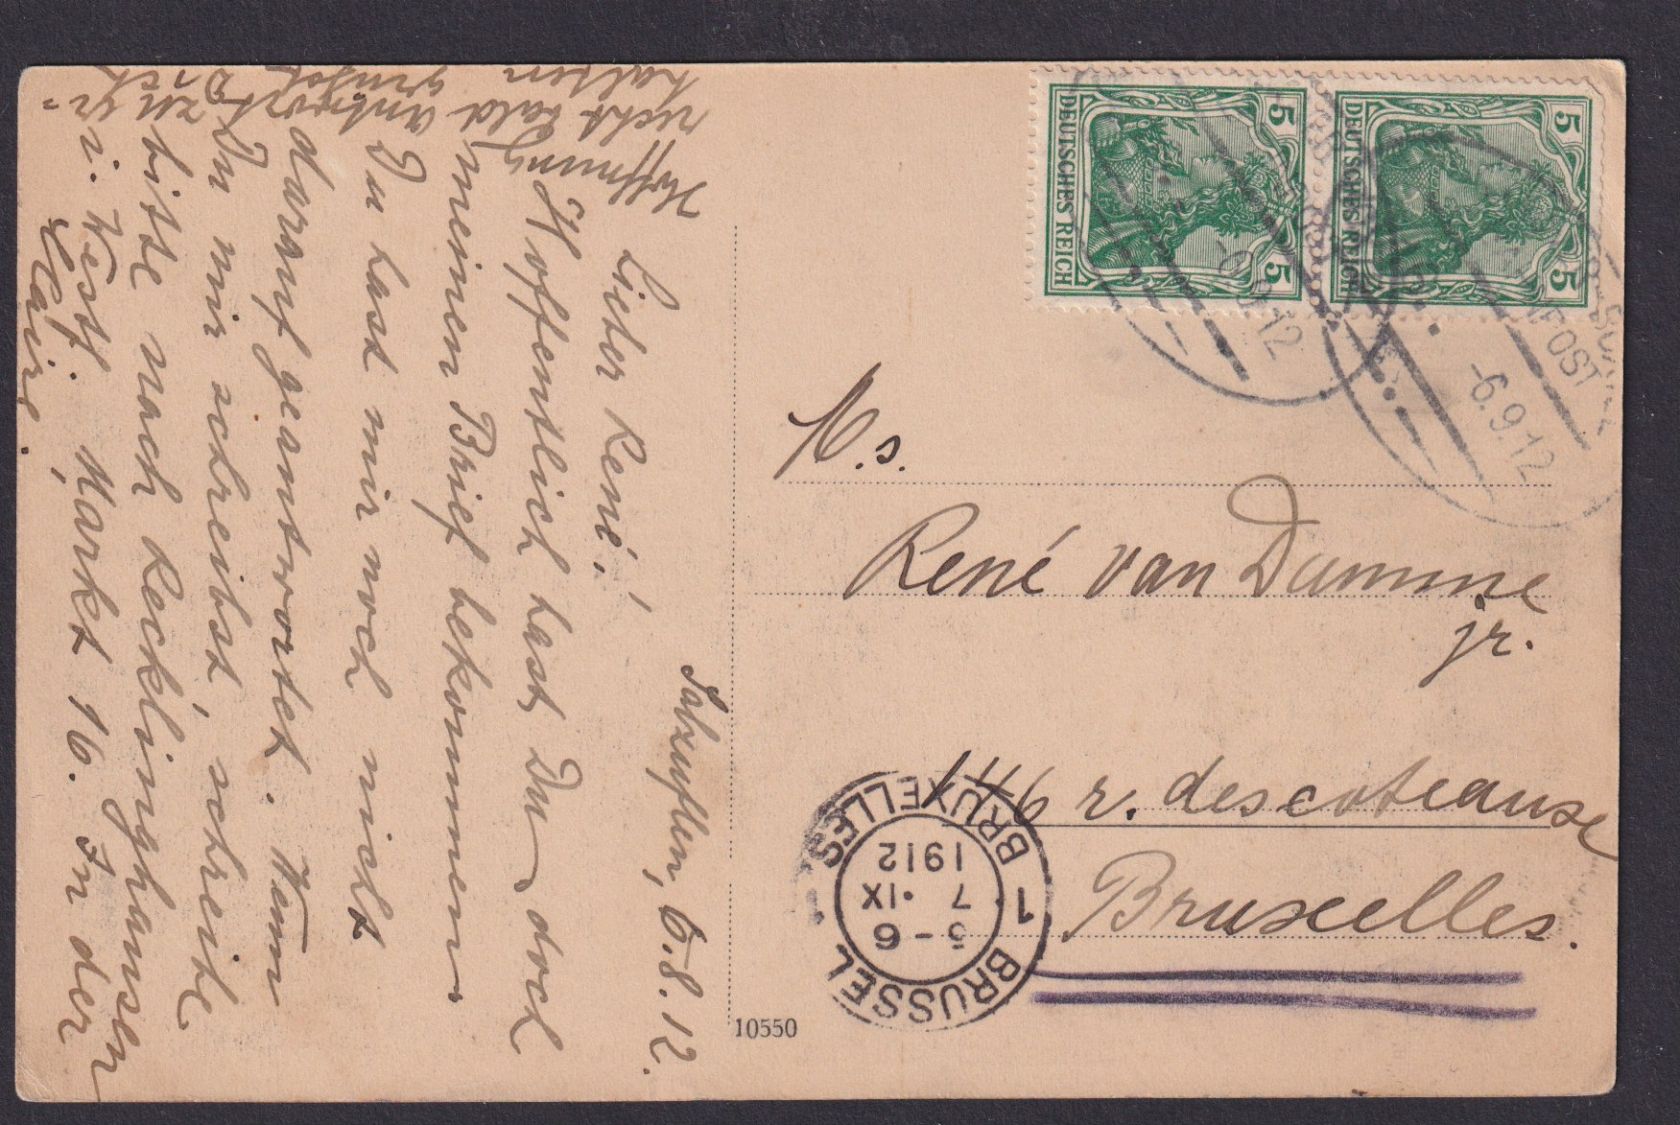 Salzuflen, 6.8.12.
Lieber René!
Hoffentlich hast Du doch
meinen Brief bekommen
Du hast mir noch nicht
darauf geantwortet. Wenn
Du mir schreibst, schreibe
bitte nach Recklinghausen
i. Westf. Markt 16. In der
Hoffnung
recht bald Antwort zu er-
halten
grüßt Dich
Claire.
M. s.
René van Damme
jr.
116 r. des coteause
Bruxelles.
10550
DEUTSCHES REICH
5 5
DEUTSCHES REICH
5 5
-6.9.12
-6.9.12
BRUSSEL 1 BRUXELLES
5-6
7 ·IX
1912